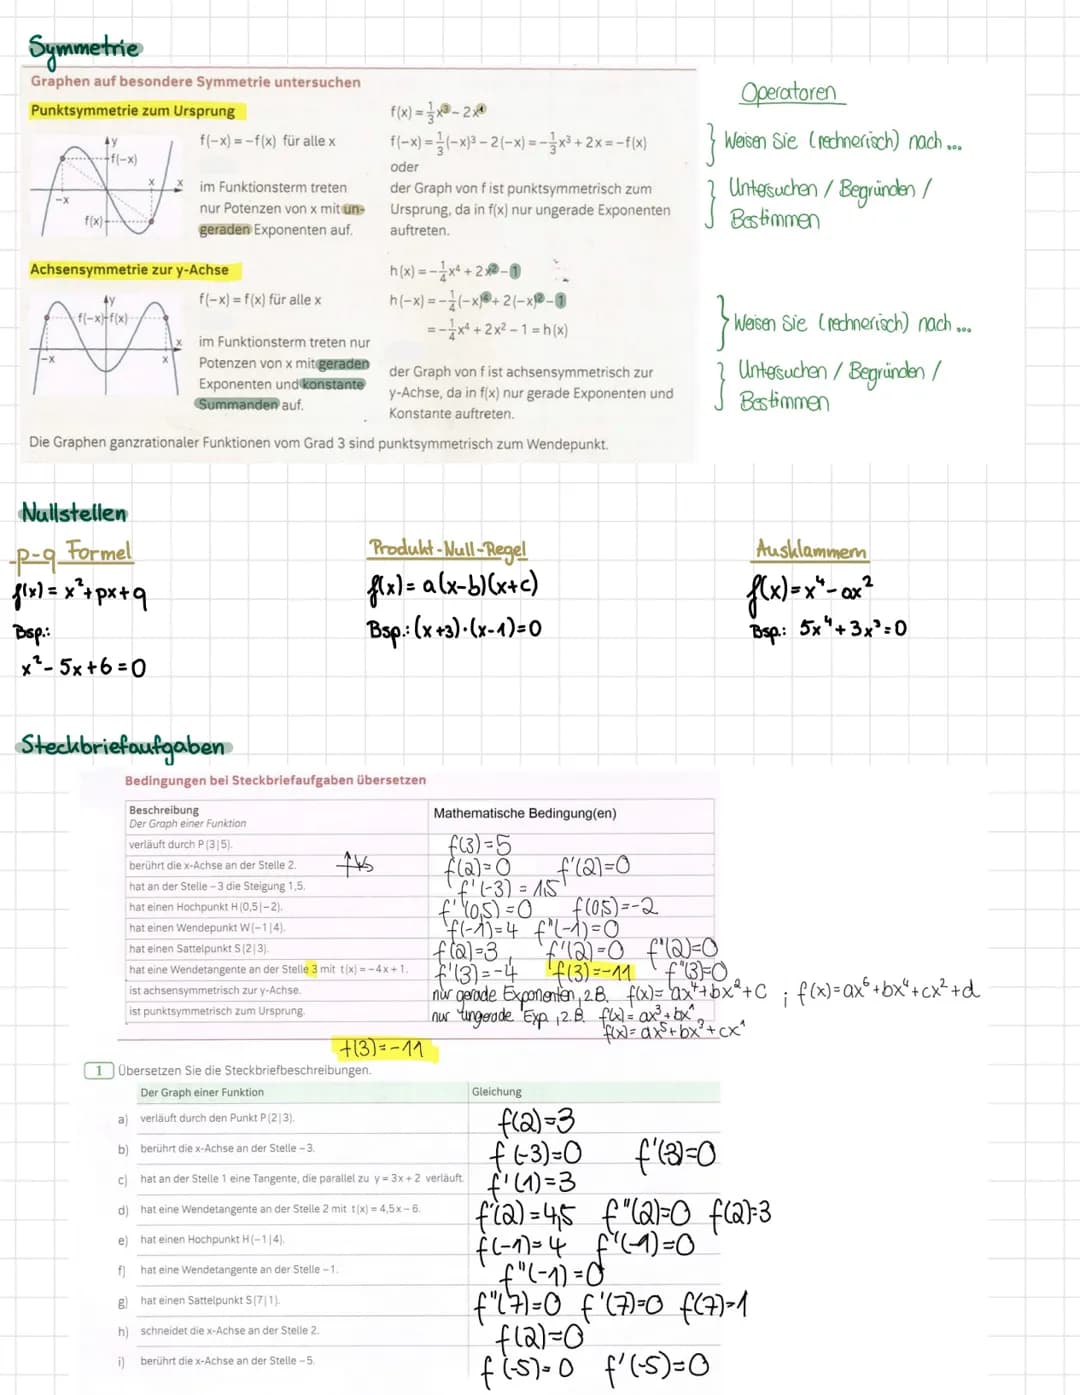 Symmetrie
Graphen auf besondere Symmetrie untersuchen
Operatoren
Punktsymmetrie zum Ursprung
f(x) = 1/3 x³ – 2x
y
f(–x)
–x
x
x
f(x)
f(–x) = –f(x) für alle x
f(–x) = 1/3 (–x)³ – 2(–x) = –1/3 x³ + 2x = –f(x)
oder
} Weisen Sie (rechnerisch) nach ...
im Funktionsterm treten
nur Potenzen von x mit un-
geraden Exponenten auf.
der Graph von f ist punktsymmetrisch zum
Ursprung, da in f(x) nur ungerade Exponenten
auftreten.
} Untersuchen / Begründen /
Bestimmen
Achsensymmetrie zur y-Achse
h(x) = –1/4 x⁴ + 2x² – 1
y
f(–x)
f(x)
–x
x
x
f(–x) = f(x) für alle x
h(–x) = –1/4 (–x)⁴ + 2(–x)² – 1
= –1/4 x⁴ + 2x² – 1 = h(x)
} Weisen Sie (rechnerisch) nach ...
im Funktionsterm treten nur
Potenzen von x mit geraden
Exponenten und konstante
Summanden auf.
der Graph von f ist achsensymmetrisch zur
y-Achse, da in f(x) nur gerade Exponenten und
Konstante auftreten.
} Untersuchen / Begründen /
Bestimmen
Die Graphen ganzrationaler Funktionen vom Grad 3 sind punktsymmetrisch zum Wendepunkt.
Nullstellen
p-q Formel
f(x) = x²+px+q
Bsp.:
x²- 5x+6=0
Produkt-Null-Regel
f(x)= a(x-b)(x+c)
Bsp.: (x+3)·(x-1)=0
Ausklammern
f(x)=x⁴- ax²
Bsp.: 5x⁴+3x³=0
Steckbriefaufgaben
Bedingungen bei Steckbriefaufgaben übersetzen
Beschreibung
Der Graph einer Funktion
Mathematische Bedingung(en)
verläuft durch P(3|5).
f(3)=5
berührt die x-Achse an der Stelle 2.
f(2)=0 f'(2)=0
hat an der Stelle –3 die Steigung 1,5.
f'(-3) = 1,5
hat einen Hochpunkt H(0,5|–2).
f'(0,5)=0 f(0,5)=-2
hat einen Wendepunkt W(–1|4).
f(-1)=4 f"(-1)=0
hat einen Sattelpunkt S(2|3).
f(2)=3, f'(2)=0 f"(2)=0
hat eine Wendetangente an der Stelle 3 mit t(x) = –4x + 1.
f'(3)=-4 f(3)=-11 f"(3)=0
ist achsensymmetrisch zur y-Achse.
nur gerade Exponenten, z.B. f(x)= ax⁴+bx²+c ; f(x)=ax⁶+bx⁴+cx²+d
ist punktsymmetrisch zum Ursprung.
nur ungerade Exp., z.B. f(x)= ax³+bx¹
f(x)= ax⁵+bx³+cx¹
t(3)=-11
1 Übersetzen Sie die Steckbriefbeschreibungen.
Der Graph einer Funktion
Gleichung
a) verläuft durch den Punkt P(2|3).
f(2)=3
b) berührt die x-Achse an der Stelle –3.
f(-3)=0 f'(3)=0
c) hat an der Stelle 1 eine Tangente, die parallel zu y = 3x + 2 verläuft.
f'(1)=3
d) hat eine Wendetangente an der Stelle 2 mit t(x) = 4,5x – 6.
f'(2)=4,5 f"(2)=0 f(2)=3
e) hat einen Hochpunkt H(–1|4).
f(-1)=4 f'(-1)=0
f) hat eine Wendetangente an der Stelle –1.
f"(-1)=0
g) hat einen Sattelpunkt S(7|1).
f"(7)=0 f'(7)=0 f(7)=1
h) schneidet die x-Achse an der Stelle 2.
f(2)=0
i) berührt die x-Achse an der Stelle –5.
f(-5)=0 f'(-5)=0